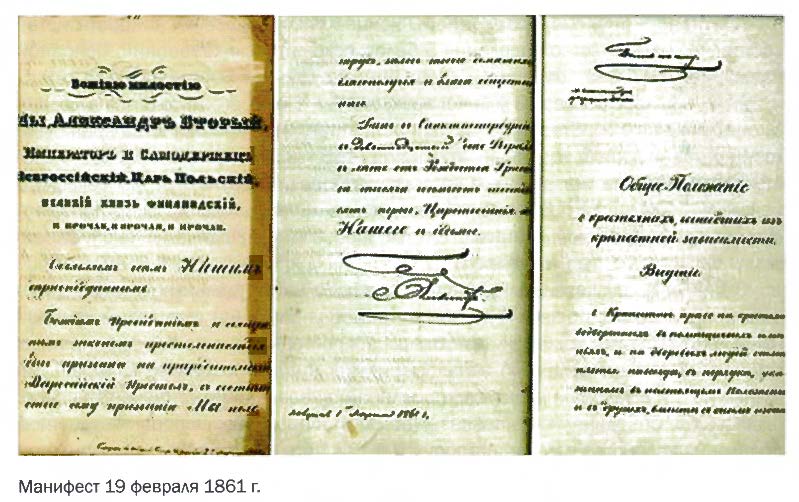 Божіею милостію
Мы, Александръ Вторый,
Императоръ и Самодержецъ
Всероссійскій, Царь Польскій,
Великій Князь Финляндскій,
и прочая, и прочая, и прочая.
Объявляемъ всѣмъ Нашимъ
вѣрноподданнымъ.
Божіимъ Провидѣніемъ и священ
нымъ закономъ престолонаслѣдія
бывъ призваны на прародительскій
Всероссійскій Престолъ, въ соотвѣт
ствіе сему призванію Мы поло
домашняго
благополучія и блага обществен
наго.
Данъ въ Санктпетербургѣ
въ девятнадцатый день Февраля
въ лѣто отъ Рождества Христова
тысяча восемьсотъ шестьде
сятъ первое, Царствованія же
Нашего въ седьмое.
Александръ
1861 г.
Общее Положеніе
о крестьянахъ, вышедшихъ изъ
крѣпостной зависимости.
Введеніе.
1. Крѣпостное право на крестьянъ
водворенныхъ въ помѣщичьихъ имѣ
ніяхъ, и на дворовыхъ людей отмѣ
няется навсегда, въ порядкѣ, ука
занномъ въ настоящемъ Положеніи
и въ другихъ, вмѣстѣ съ симъ
Манифест 19 февраля 1861 г.